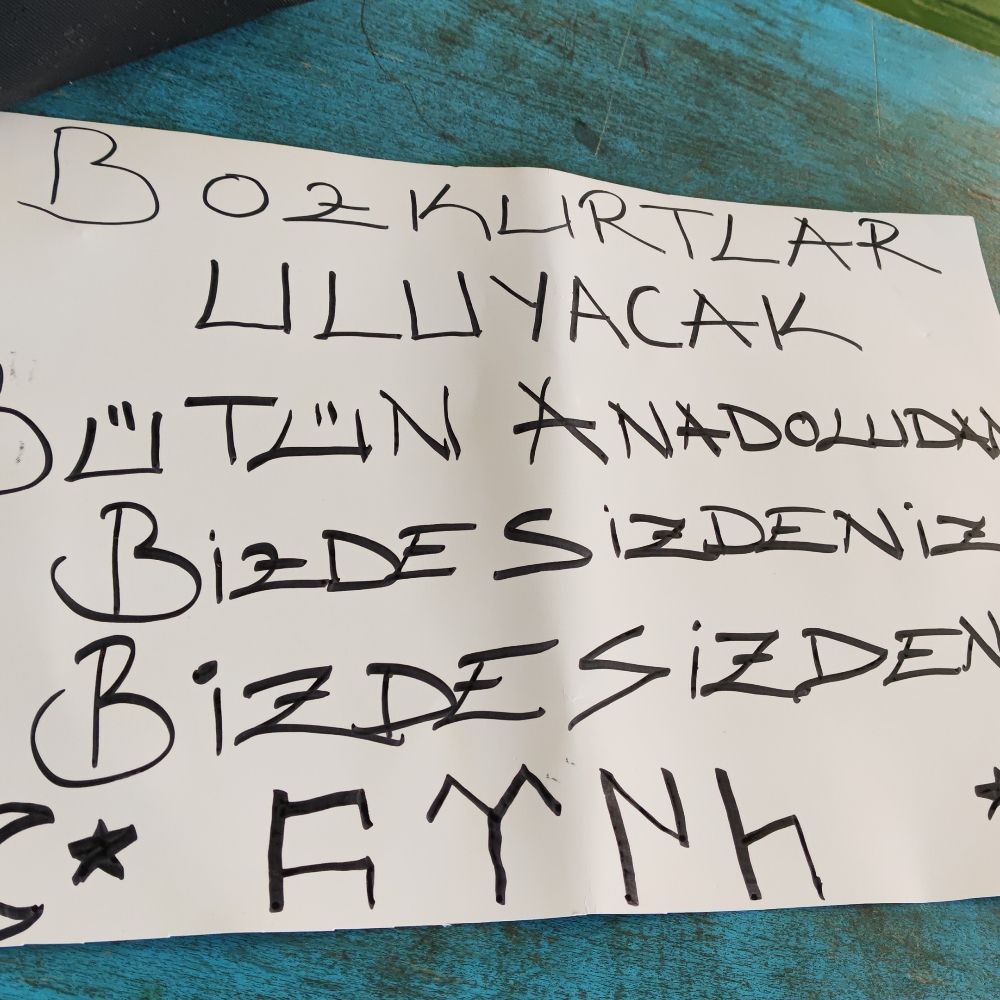 BOZKURTLAR
ULUYACAK
BÜTÜN ANADOLUDAN
BİZDE SİZDENİZ
BİZDE SİZDEN
𐱅𐰇𐰼𐰜